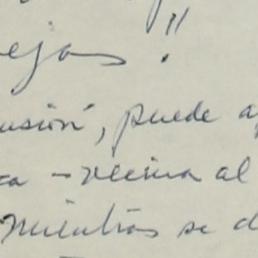 ejas!!
usión, puede a
ca - vecina al
mientras se d